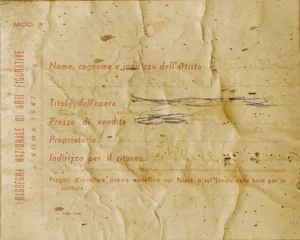 MOD. 3
RASSEGNA NAZIONALE DI ARTI FIGURATIVE
ROMA 1947
Nome, cognome e indirizzo dell'artista
Titolo dell'opera
Prezzo di vendita
Proprietario
Indirizzo per il ritorno
Pregasi d'incollare questo cartellino sul telaio o sul fondo della base per la
scultura.